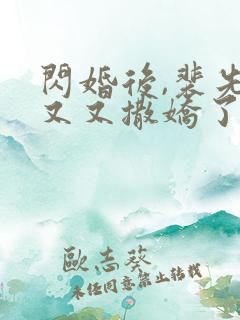 閃婚後,裴先
又又撒嬌了
歐志葵
未经同意禁止转载